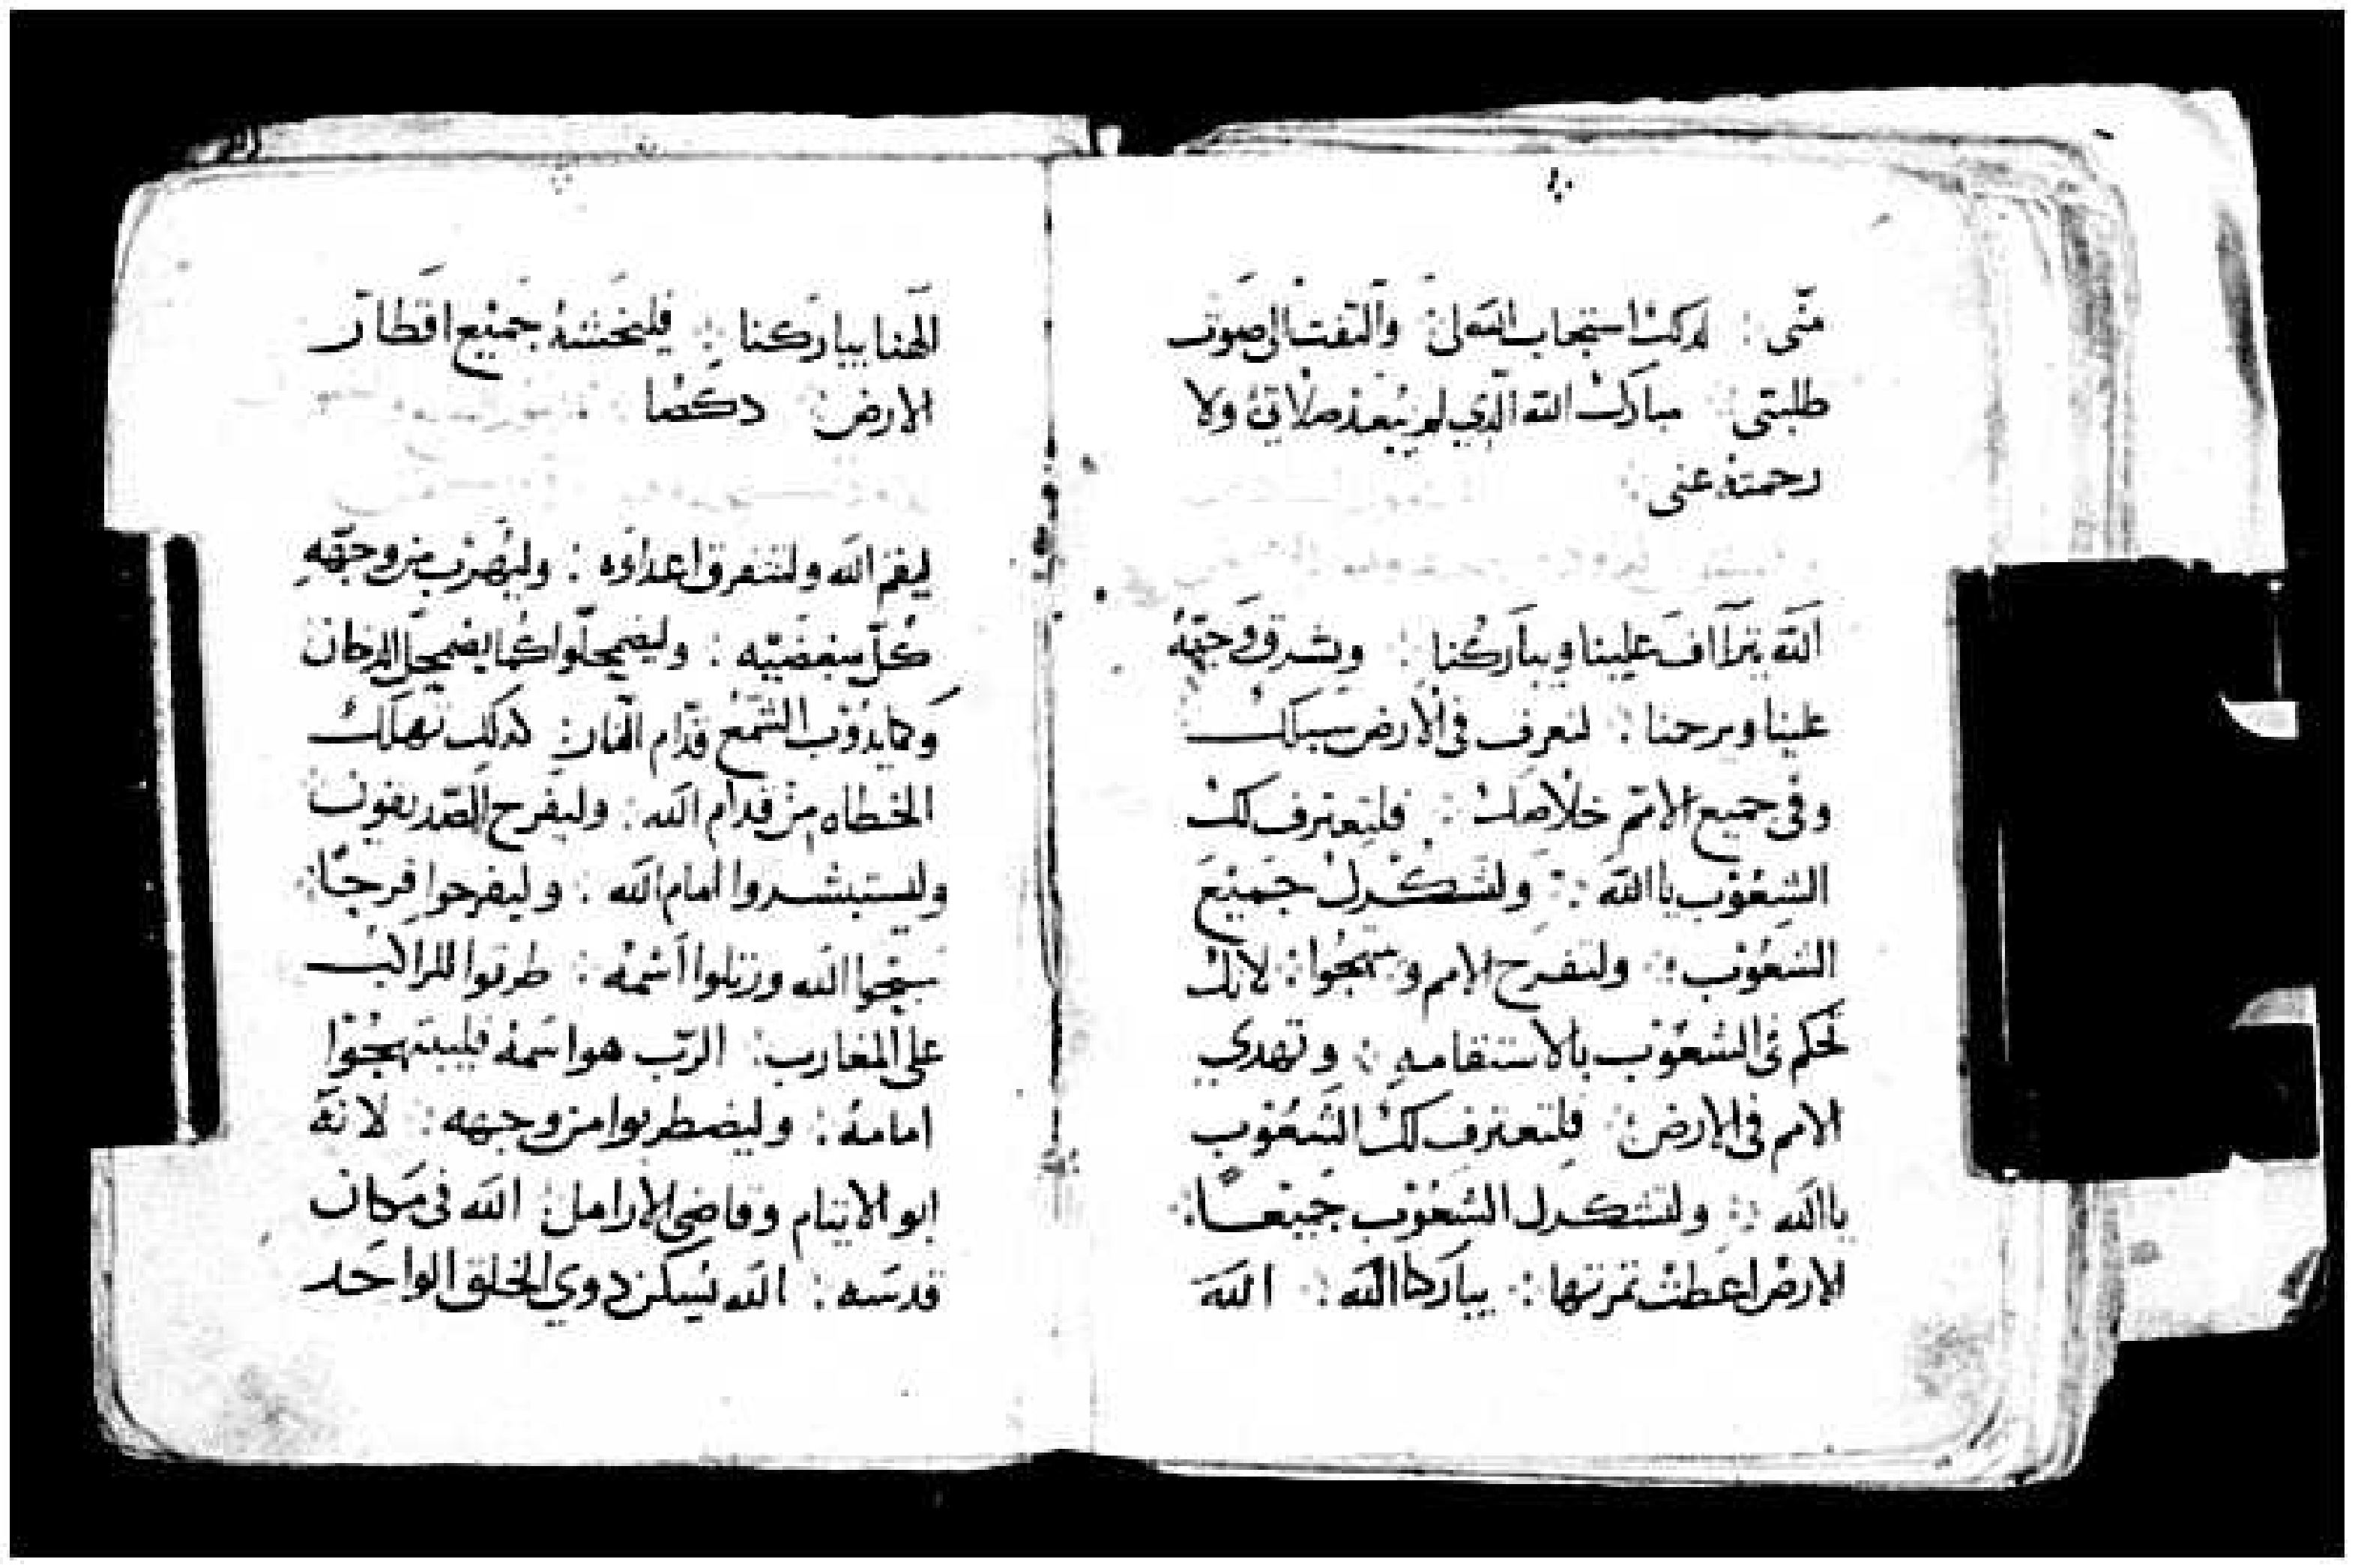 منّى : لدلك استجاب الله لى والتفت الى صوت
طلبتى مبارك الله الدي لم يبعد صلاتى ولا
رحمته عنى
الله يتراأف علينا ويباركنا : ويشرق وجهه
علينا ويرحمنا : لنعرف فى الارض سبيلك
وفى جميع الامم خلاصك : فليعترف لك
الشعوب يا الله : ولتشكرك جميع
الشعوب : ولتفرح الامم وتبتهجوا : لانك
تحكم فى الشعوب بالاستقامه : وتهدي
الامم فى الارض فلتعترف لك الشعوب
يا الله : ولتشكرك الشعوب جميعًا :
الارض اعطت ثمرتها : يباركنا الله : الله
الهنا يباركنا : فليخشه جميع اقطار
الارض :
ليقم الله ولتتفرق اعداوه : وليهرب من وجهه
كلّ مبغضيه : وليضمحلّوا كما يضمحل الدخان
وكما يدوب الشمع قدّام النار كدلك تهلك
الخطاه من قدام الله : وليفرح الصديقون
وليستبشروا امام الله : وليفرحوا فرحًا :
سبّحوا الله ورتلوا اسمه : طرقوا للراكب
على المغارب : الربّ هو اسمه فليبتهجوا
امامه : وليضطربوا من وجهه : لانه
ابو الايتام وقاضى الارامل : الله فى مكان
قدسه : الله يسكن دوي الخلق الواحد